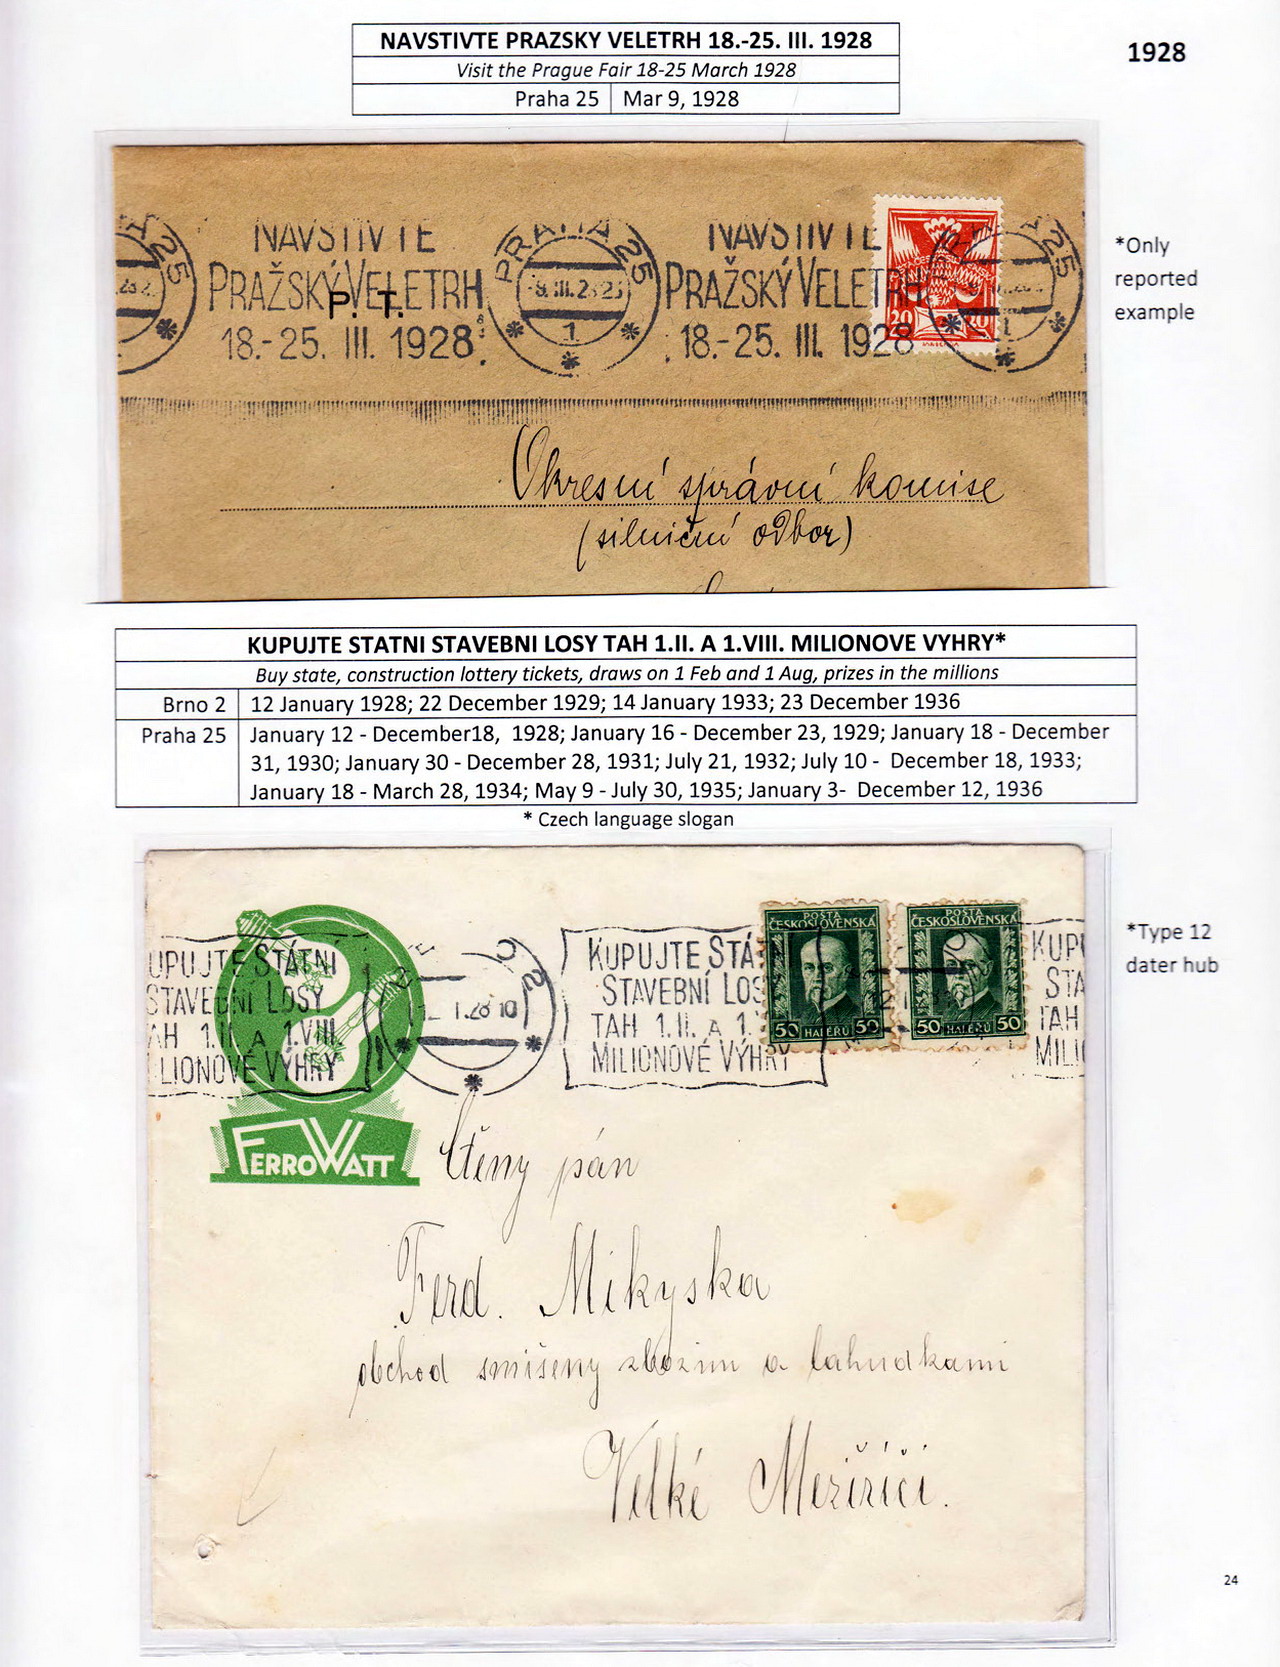 NAVSTIVTE PRAZSKY VELETRH 18.-25. III. 1928
Visit the Prague Fair 18-25 March 1928
Praha 25 Mar 9, 1928
1928
PRAHA 25
NAVŠTIVTE
PRAŽSKÝ VELETRH
18.-25. III. 1928
P. T.
PRAHA 25
1
NAVŠTIVTE
PRAŽSKÝ VELETRH
18.-25. III. 1928
20 20
*Only
reported
example
Okresní správní komise
(silniční odbor)
KUPUJTE STATNI STAVEBNI LOSY TAH 1.II. A 1.VIII. MILIONOVE VYHRY*
Buy state, construction lottery tickets, draws on 1 Feb and 1 Aug, prizes in the millions
Brno 2 12 January 1928; 22 December 1929; 14 January 1933; 23 December 1936
Praha 25 January 12 - December18, 1928; January 16 - December 23, 1929; January 18 - December
31, 1930; January 30 - December 28, 1931; July 21, 1932; July 10 - December 18, 1933;
January 18 - March 28, 1934; May 9 - July 30, 1935; January 3- December 12, 1936
* Czech language slogan
UPUJTE STÁTNÍ
STAVEBNÍ LOSY
AH 1.II. A 1.VIII.
LIONOVÉ VÝHRY
KUPUJTE STÁ
STAVEBNÍ LOS
TAH 1.II. A 1.
MILIONOVÉ VÝHRY
POŠTA
ČESKOSLOVENSKÁ
50 HALÉŘŮ 50
POŠTA
ČESKOSLOVENSKÁ
50 HALÉŘŮ 50
KUPU
STA
TAH
MILI
*Type 12
dater hub
FERROWATT
Ctěný pán
Ferd. Mikyska
obchod smíšeny zbozim a lahudkami
Velké Meziříčí.
24